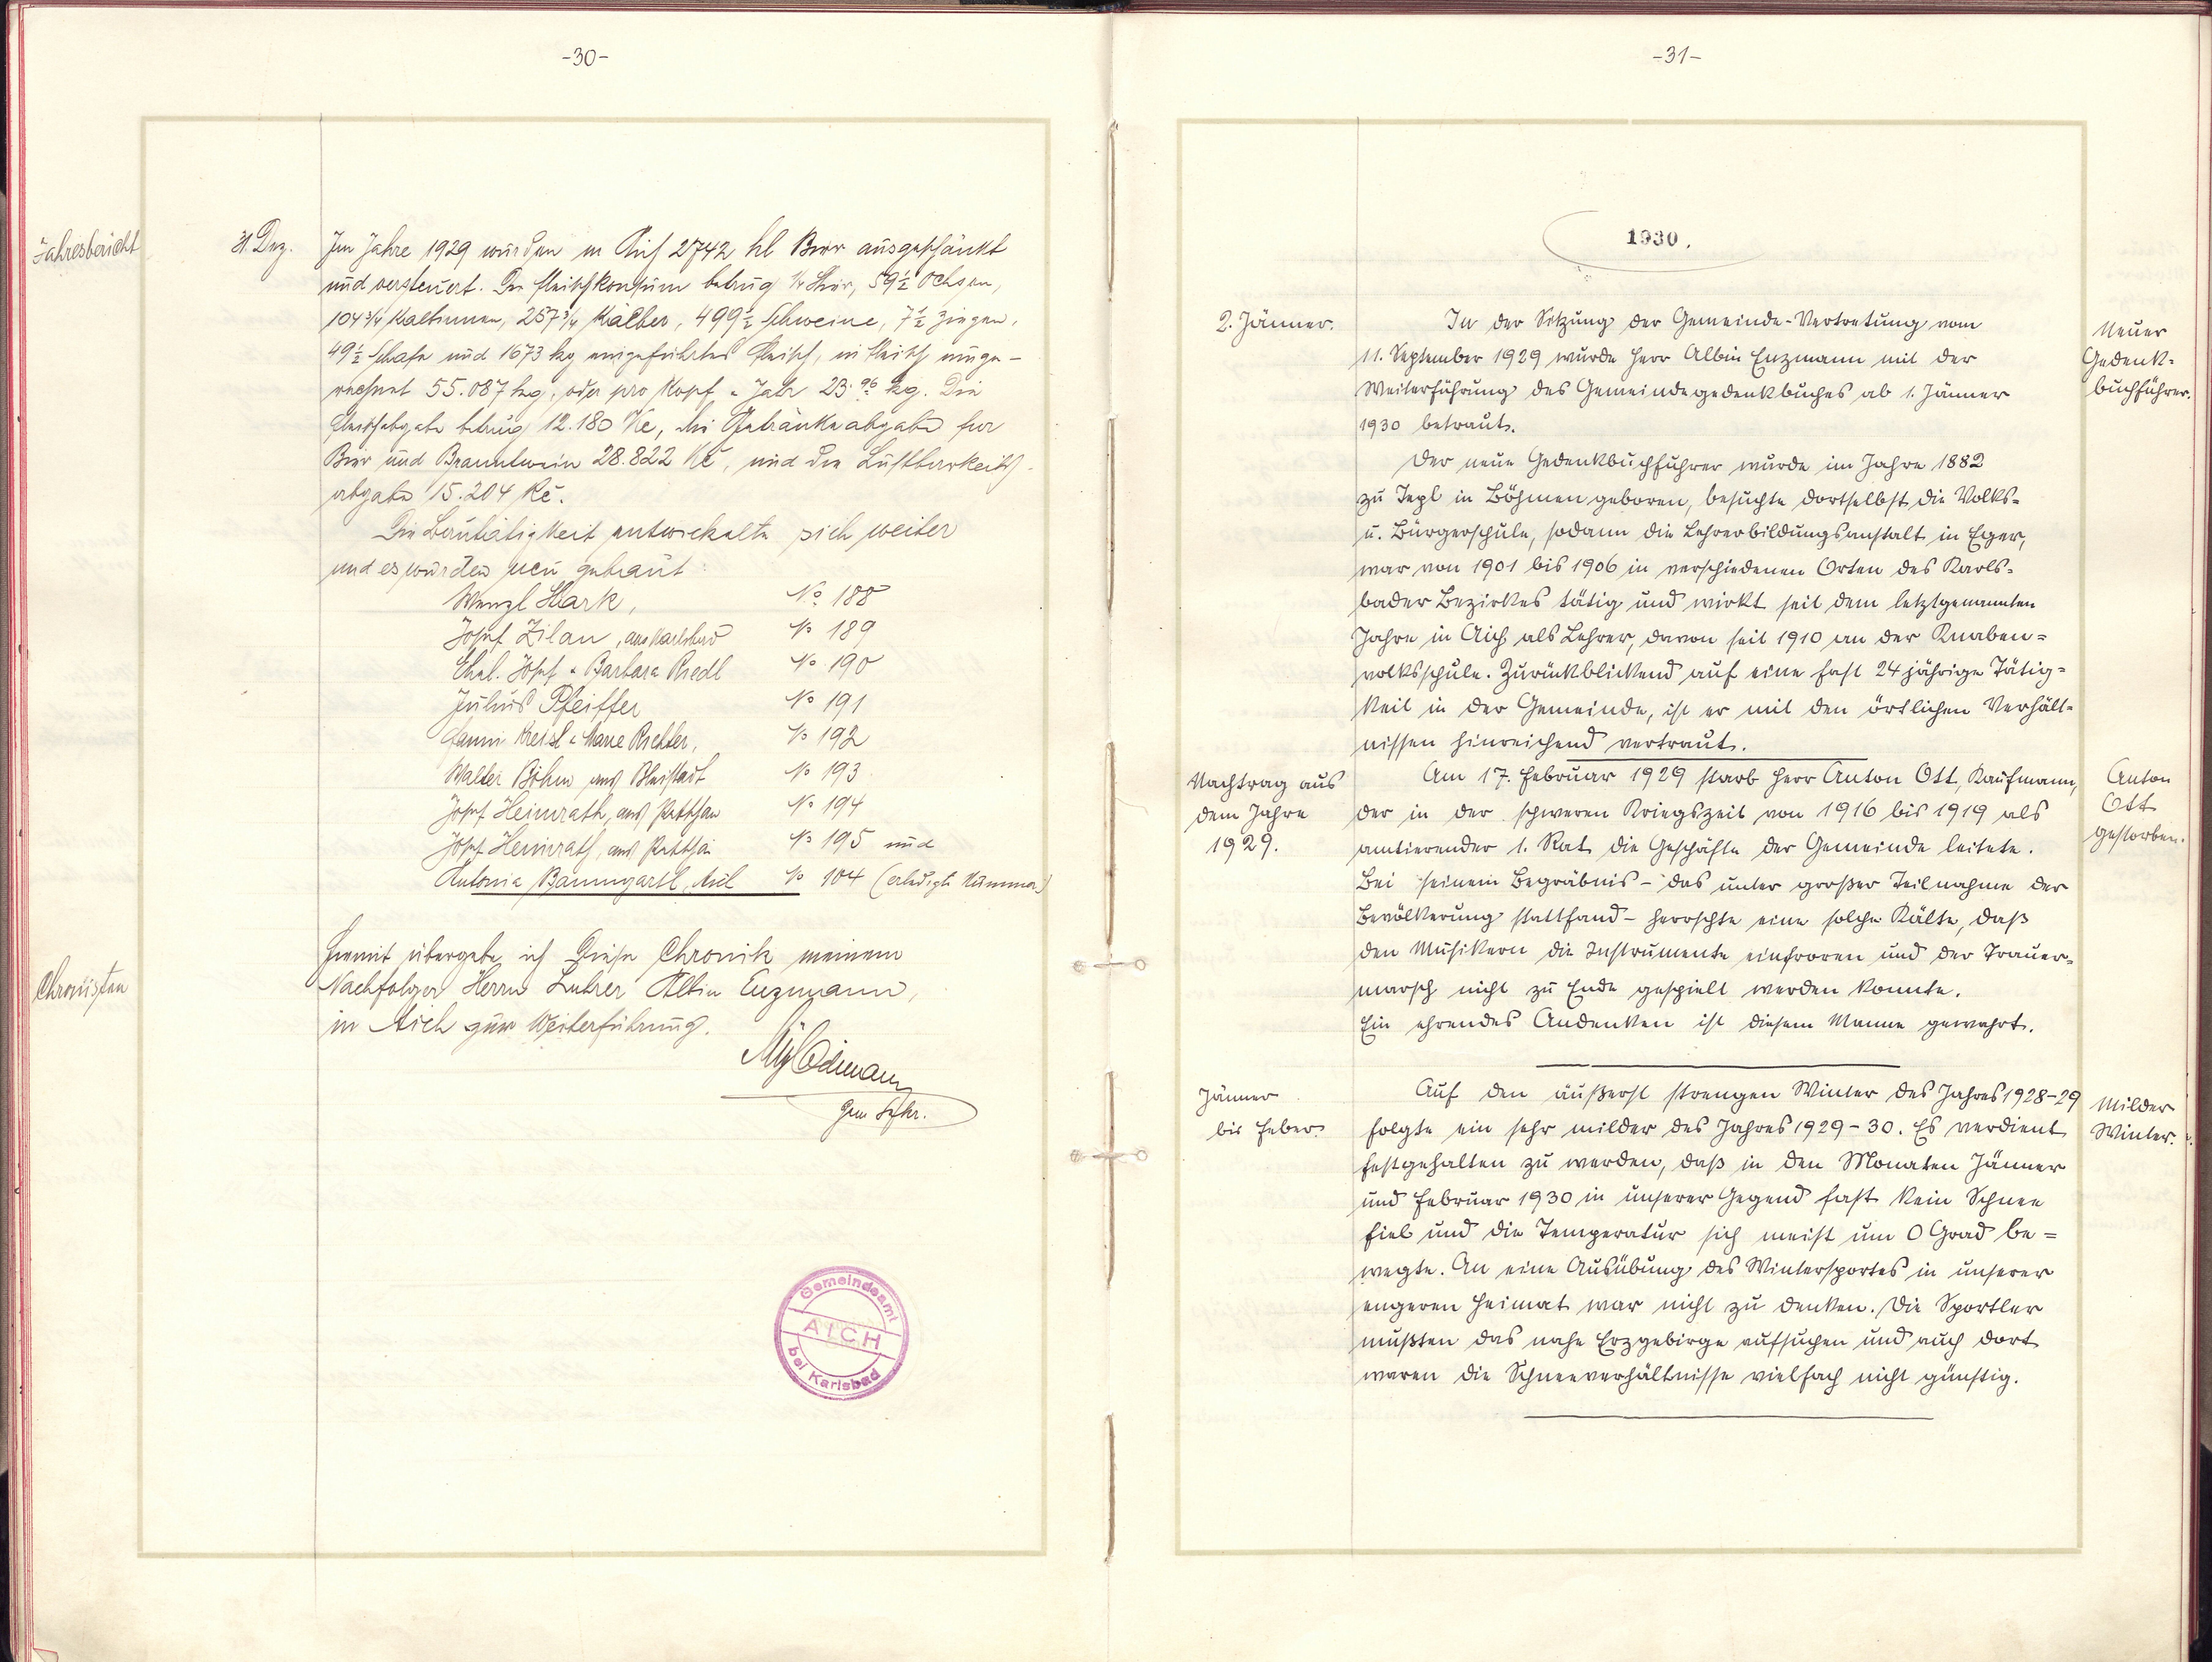 -30-
Jahresbericht
31. Dez.
Im Jahre 1929 wurden in Aich 2742 hl Bier ausgeschänkt
und versteuert. Der Fleischkonsum betrug 1 Stier, 59½ Ochsen,
104¾ Kalbinnen, 257¾ Kälber, 499½ Schweine, 7½ Ziegen,
49½ Schafe und 1673 kg eingeführtes Fleisch, in Fleisch umge-
rechnet 55.087 kg, oder pro Kopf u. Jahr 23.96 kg. Die
Fleischabgabe betrug 12.180 Kč, die Getränkeabgabe für
Bier und Branntwein 28.822 Kč, und die Lustbarkeits-
abgabe 15.204 Kč.
Die Bautätigkeit entwickelte sich weiter
und es wurden neu gebaut:
Wenzl Stark, No 188
Josef Zilan, aus Karlsbad No 189
Ehel. Josef u. Barbara Riedl No 190
Julius Pfeiffer No 191
Fanni Kreisl u. Marie Richter, No 192
Walter Böhm aus Bleistadt No 193
Josef Heinrath, aus Putschau No 194
Josef Heinrath, aus No 195 und
Antonia Baumgartl, Aich No 104 (erledigte Nummer)
Chronisten
Hiemit übergebe ich diese Chronik meinem
Nachfolger Herrn Lehrer Albin Enzmann,
in Aich zur Weiterführung.
Gem Sekr.
Gemeindeamt
AICH
bei Karlsbad
-31-
1930.
2. Jänner.
Neuer
Gedenk-
buchführer.
In der Sitzung der Gemeinde-Vertretung vom
11. September 1929 wurde Herr Albin Enzmann mit der
Weiterführung des Gemeindegedenkbuches ab 1. Jänner
1930 betraut.
Der neue Gedenkbuchführer wurde im Jahre 1882
zu Tepl in Böhmen geboren, besuchte dortselbst die Volks-
u. Bürgerschule, sodann die Lehrerbildungsanstalt in Eger,
war von 1901 bis 1906 in verschiedenen Orten des Karls-
bader Bezirkes tätig und wirkt seit dem letztgenannten
Jahre in Aich als Lehrer, davon seit 1910 an der Knaben-
volksschule. Zurückblickend auf eine fast 24 jährige Tätig-
keit in der Gemeinde, ist er mit den örtlichen Verhält-
nissen hinreichend vertraut.
Nachtrag aus
dem Jahre
1929.
Anton
Ott
gestorben.
Am 17. Februar 1929 starb Herr Anton Ott, Kaufmann,
der in der schweren Kriegszeit von 1916 bis 1919 als
amtierender 1. Rat die Geschäfte der Gemeinde leitete.
Bei seinem Begräbnis - das unter großer Teilnahme der
Bevölkerung stattfand - herrschte eine solche Kälte, daß
den Musikern die Instrumente einfroren und der Trauer-
marsch nicht zu Ende gespielt werden konnte.
Ein ehrendes Andenken ist diesem Manne gewahrt.
Jänner
bis Feber.
Milder
Winter.
Auf den äußerst strengen Winter des Jahres 1928-29
folgte ein sehr milder des Jahres 1929-30. Es verdient
festgehalten zu werden, daß in den Monaten Jänner
und Februar 1930 in unserer Gegend fast kein Schnee
fiel und die Temperatur sich meist um 0 Grad be-
wegte. An eine Ausübung des Wintersportes in unserer
engeren Heimat war nicht zu denken. Die Sportler
mußten das nahe Erzgebirge aufsuchen und auch dort
waren die Schneeverhältnisse vielfach nicht günstig.